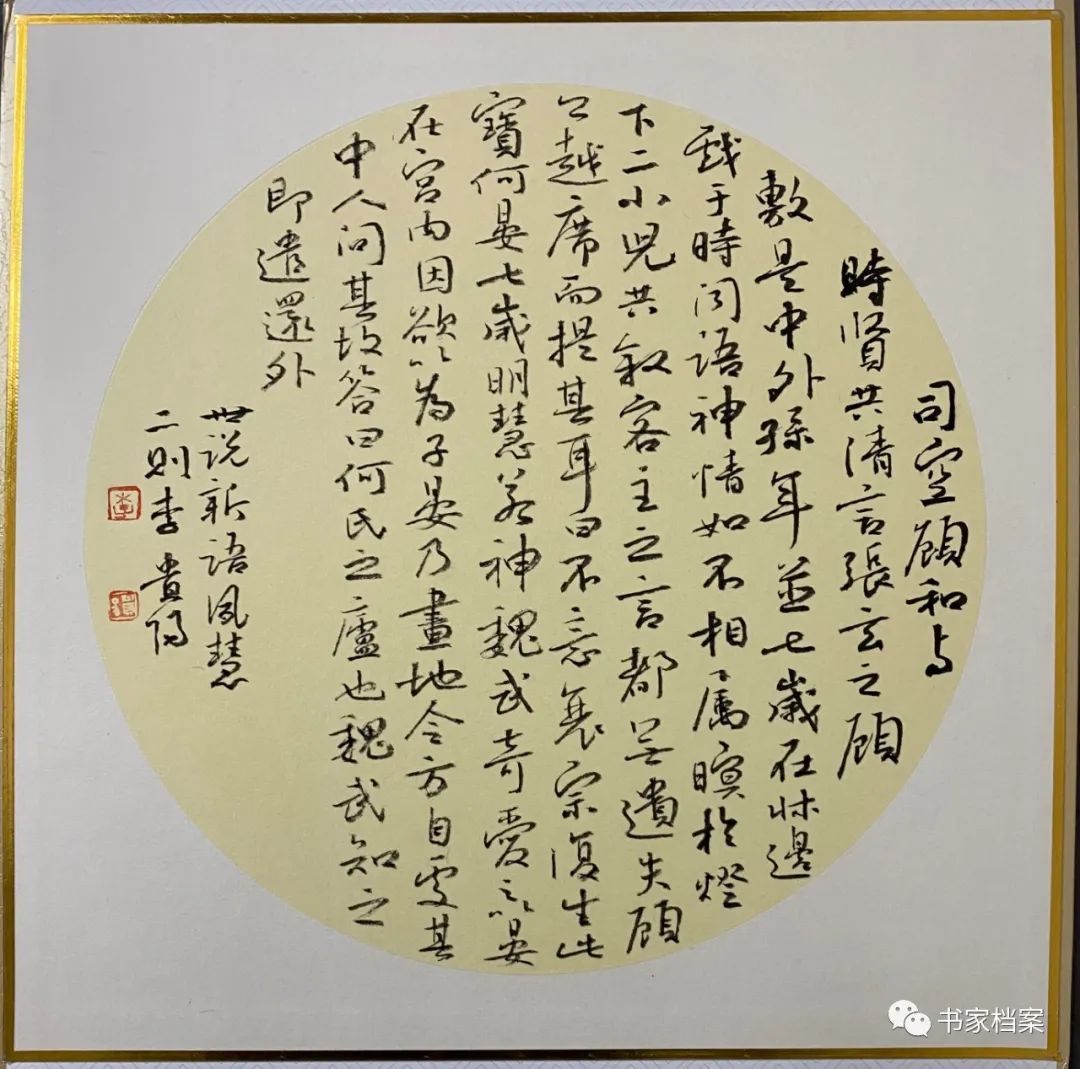 司空顾和与
時賢共清言張玄之顾
敷是中外孫年並七歲在牀邊
戲于時闻語神情如不相属暝於燈
下二小兒共叙客主之言都無遺失顾
公越席而提其耳曰不意衰宗復生此
寶何晏七歲明慧若神魏武奇愛之以晏
在宮内因欲以為子晏乃畫地令方自處其
中人问其故答曰何氏之廬也魏武知之
即遣還外
世说新語夙慧
二则李貴陽
李
書家档案